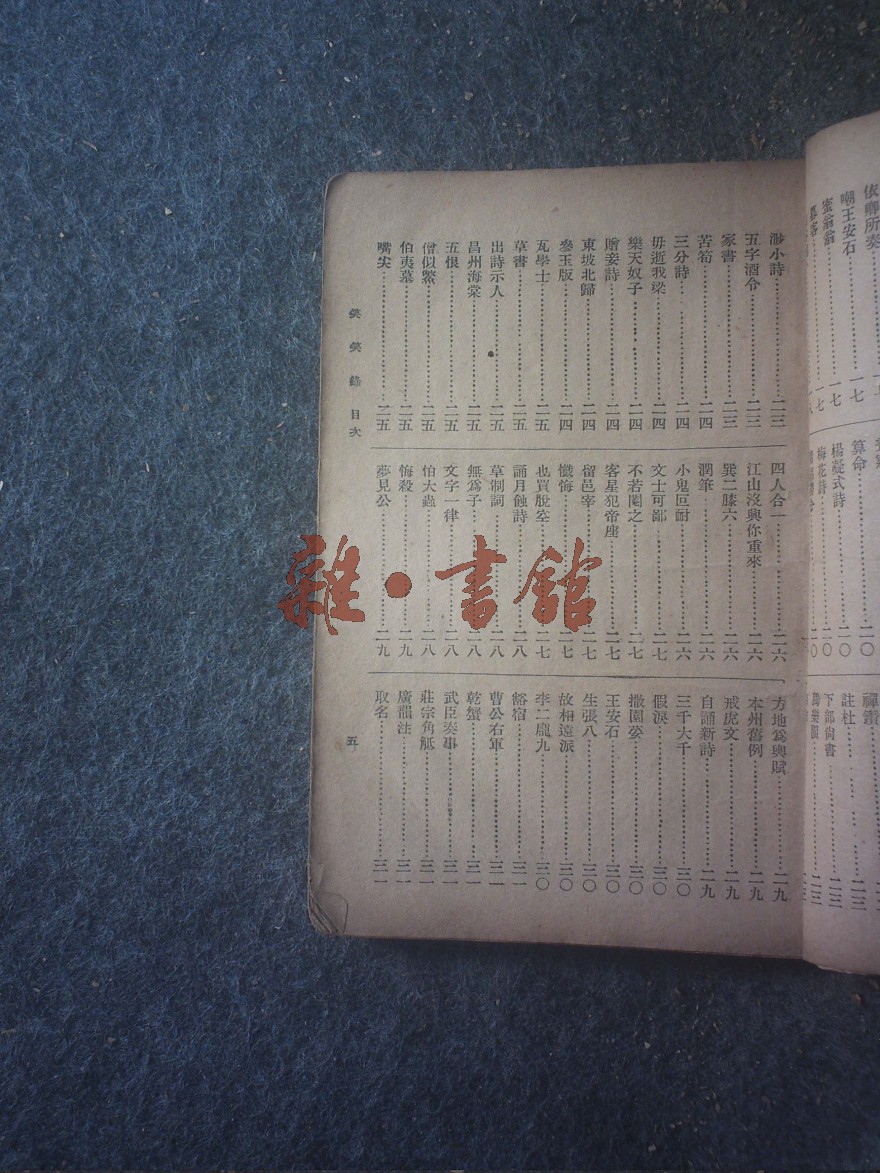 依卿所奏
嘲王安石……一七
蜜翁翁……一七
算命
楊凝式詩……二〇
梅花詩……二〇
禪畫
註杜……二三
下部尚書……二三
渺小詩……二三
五字酒令……二三
家書……二三
苦筍……二四
三分詩……二四
毋逝我梁……二四
樂天奴子……二四
贈妾詩……二四
東坡北歸……二四
參玉版……二四
瓦學士……二五
草書……二五
出詩示人……二五
昌州海棠……二五
五恨……二五
僧似鱉……二五
伯夷墓……二五
嘴尖……二五
四人合一……二六
江山沒與你重來……二六
巽二膝六……二六
潤筆……二六
小鬼叵耐……二六
文士可鄙……二七
不若閹之……二七
客星犯帝座……二七
留邑宰……二七
懺悔……二七
也買脫空……二七
誦月蝕詩……二八
草制詞……二八
無為子……二八
文字一律……二八
怕大蟲……二八
悔殺……二九
夢見公……二九
方地為輿賦……二九
本州舊例……二九
戒虎文……二九
自誦新詩……二九
三千大千……三〇
假淚……三〇
撒園荽……三〇
王安石……三〇
生張八……三〇
放相遠派……三〇
李二龐九……三〇
豁宿……三一
曹公右軍……三一
乾蟹……三一
武臣奏事……三一
莊宗角觝……三一
廣韻注……三一
取名……三一
笑笑錄目次
五
雜·書館